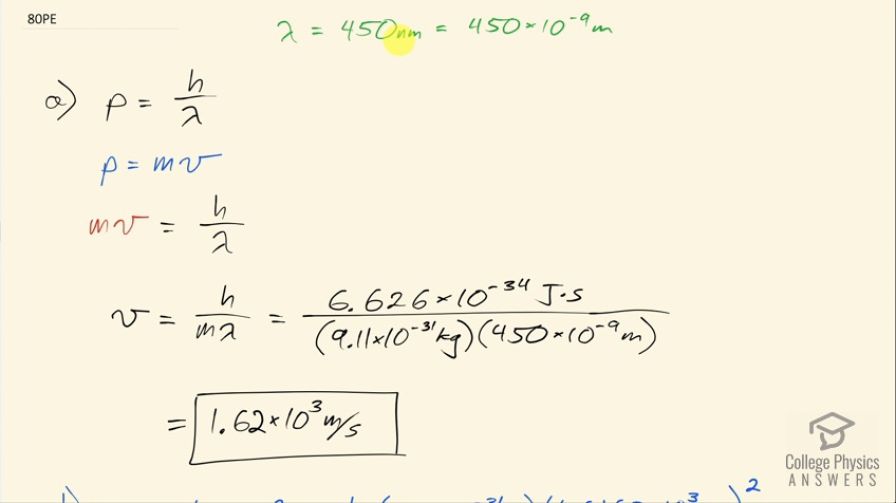 80PE
λ = 450nm = 450×10⁻⁹m
a) p = h/λ
p = mv
mv = h/λ
v = h/mλ = 6.626×10⁻³⁴ J·s / (9.11×10⁻³¹kg)(450×10⁻⁹m)
= 1.62×10³m/s
College Physics
ANSWERS